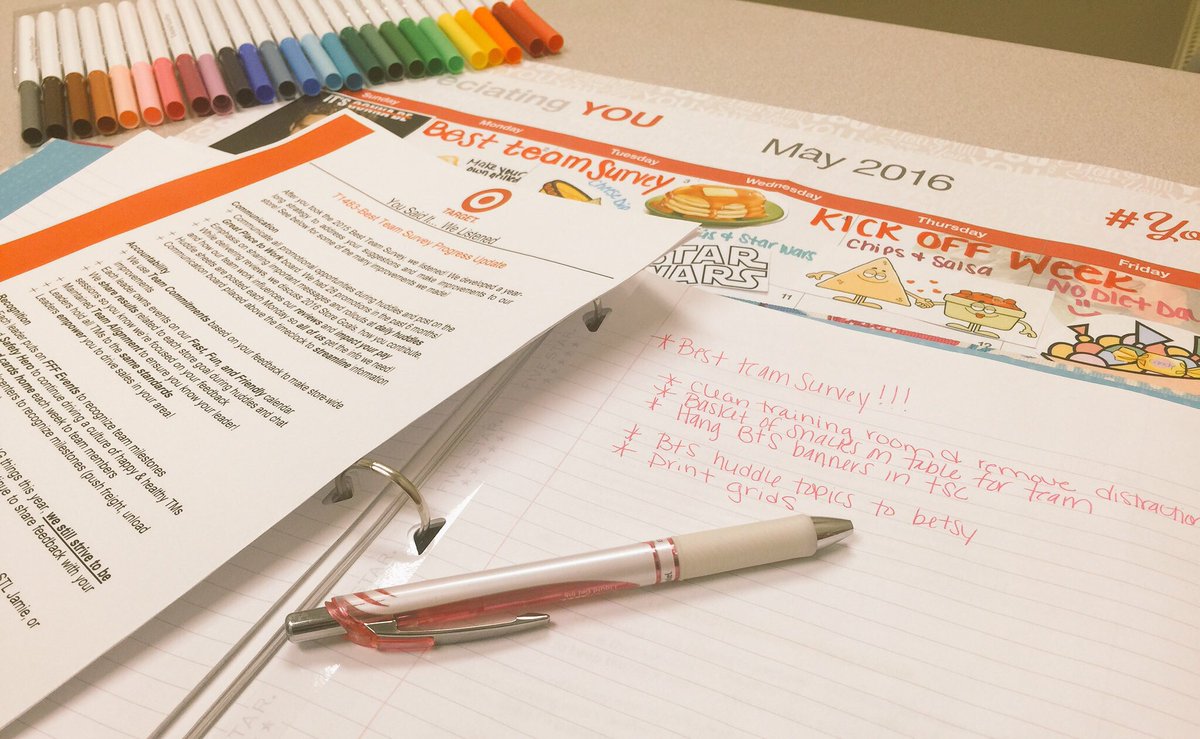 eciating YOU
May 2016
#Yo
Sunday
Monday
Tuesday
Wednesday
Thursday
Friday
IT'S
Best team Survey
Make Your
own
KICK OFF WEEK
Chips & Salsa
NO Diet Da
& Star Wars
STAR
WARS
11
12
TARGET
You Said It... We Listened
T1493-Best Team Survey Progress Update
After you took the 2015 Best Team Survey, we listened! We developed a year-
long strategy to address your suggestions and make improvements to our
store! See below for some of the many improvements we made!
Communication
+ Communicate all promotional opportunities during huddles and post on the
Great Place to Work board. We had 25 promotions in the past 6 months!
+ Emphasis on sharing important messages and rollouts at daily huddles
+ While delivering reviews, we discuss 2016 Store Goals, how you contribute
and how our team influences our reviews and impact your pay
+ Huddle sheets are posted each Monday, so all of us get the info we need
+ Communication board placed above the timeclock to streamline information
Accountability
+ We use Team Commitments based on your feedback to make store-wide
improvements
+ Each leader owns events on our Fast, Fun, and Friendly calendar
+ We share results related to each store goal during huddles and chat
sessions so you know we're focused on your feedback
+ Maintained Team Alignment to ensure you know your leader!
+ Leaders hold all TMs to the same standards
+ Leaders empower you to drive sales in your area!
Recognition
Each leader puts on FFF Events to recognize team milestones
Safety Hero to continue driving a culture of happy & healthy TMs
cards home each week to team members
centers to recognize milestones (push freight, unload
G things this year, we still strive to be
nue to share feedback with your
STL Jamie, or
* Best team Survey!!!
* Clean training room & remove distraction
* Basket of snacks in table for team
* Hang BTS banners in TSC
* BTS huddle topics to betsy
* Print grids